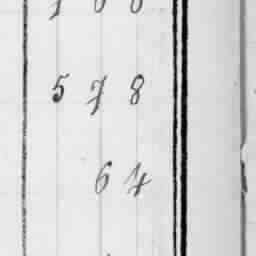 578
64